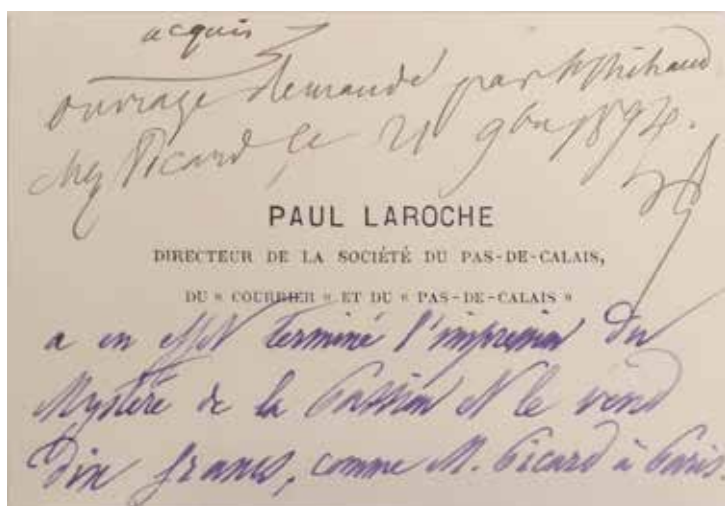 acquis
ouvrage demandé par
chez Picard le 21 9bre 1894.
PAUL LAROCHE
DIRECTEUR DE LA SOCIÉTÉ DU PAS-DE-CALAIS,
DU « COURRIER » ET DU « PAS-DE-CALAIS »
a en effet terminé l'impression du
Mystère de la Passion et le vend
dix francs, comme M. Picard à Paris.